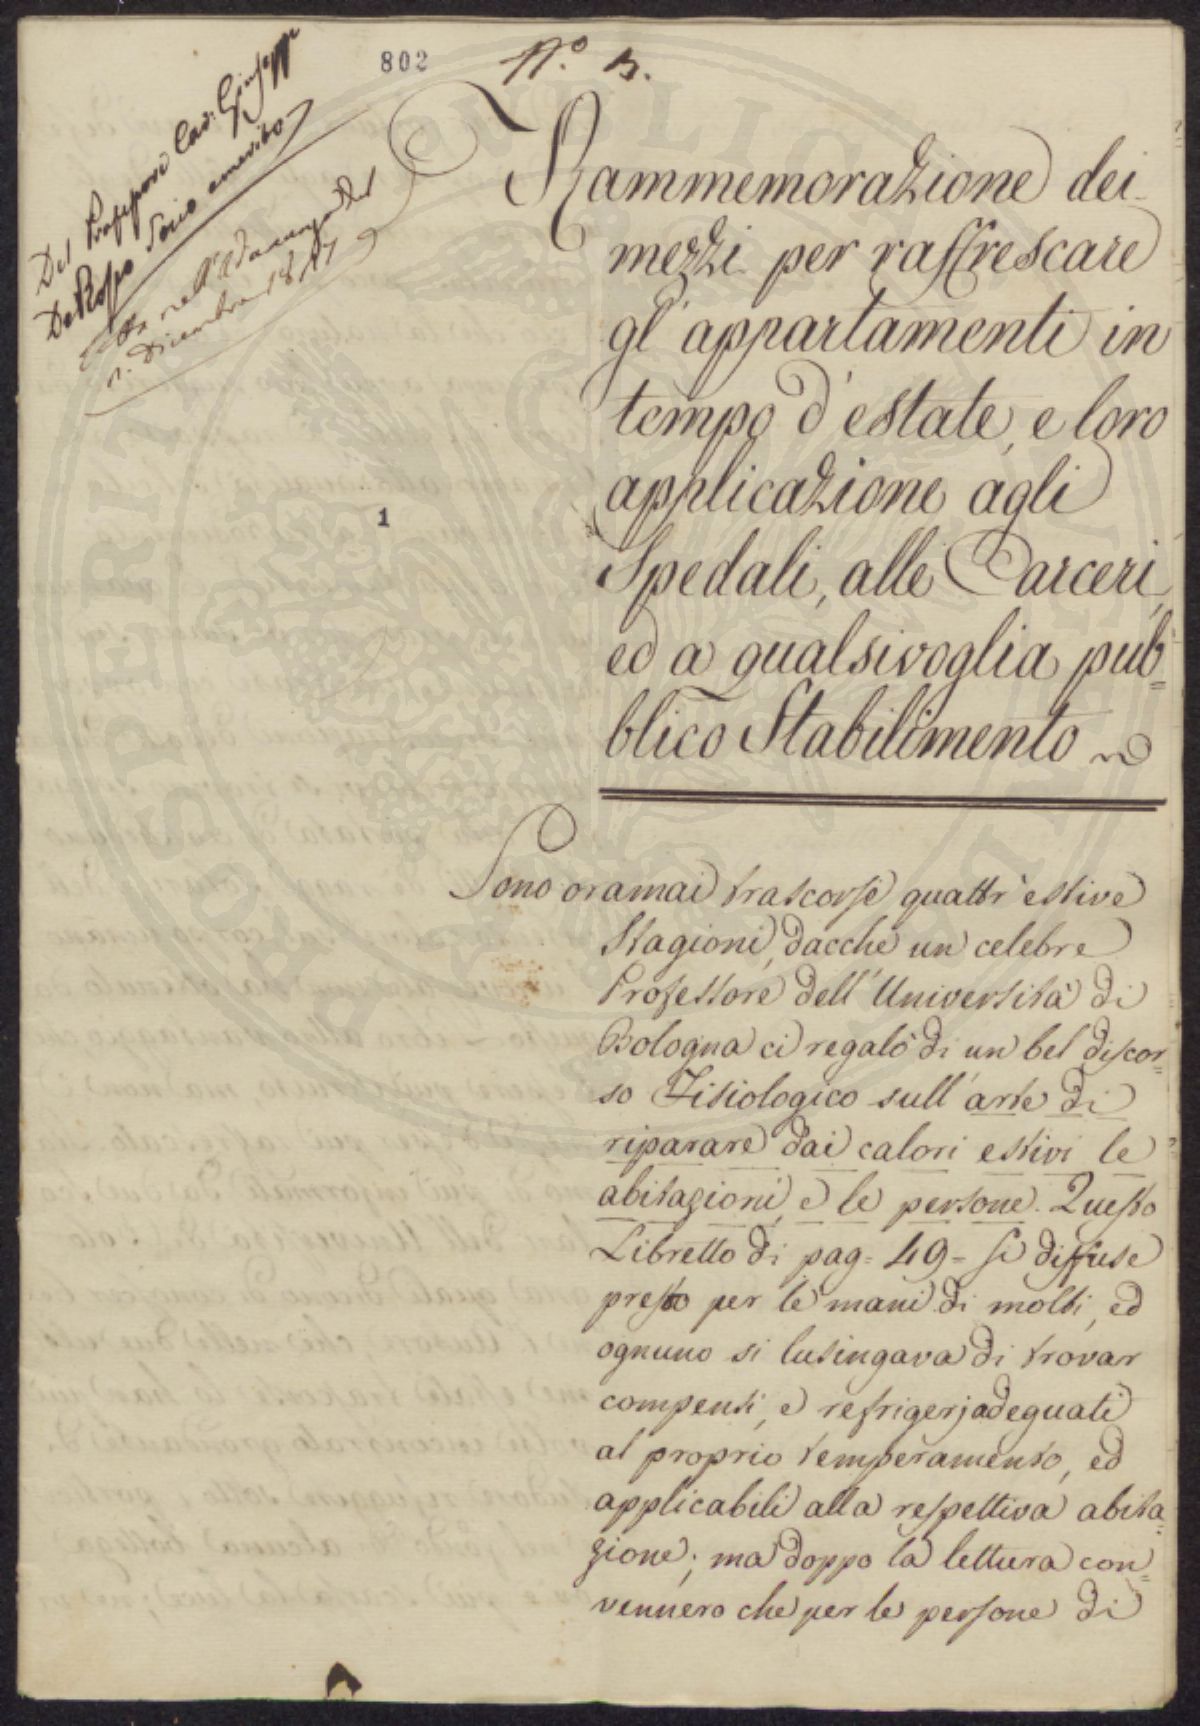 802
N.º 13.
Del Professore Cav. Giuseppe
Del Rosso Socio emerito
Letta nell'Adunanza del
Dicembre
Rammemorazione dei
mezzi per raffrescare
gl'appartamenti in
tempo d'estate, e loro
applicazione agli
Spedali, alle Carceri,
ed a qualsivoglia pub=
blico Stabilimento
1
Sono oramai trascorse quattr'estive
Stagioni, dacche un celebre
Professore dell'Università di
Bologna ci regalò di un bel discor=
so Fisiologico sull'arte di
riparare dai calori estivi le
abitazioni, e le persone. Questo
Libretto di pag= 49= si diffuse
presto per le mani di molti, ed
ognuno si lusingava di trovar
compensi, e refrigerj adeguati
al proprio temperamento, ed
applicabili alla respettiva abita=
zione; ma doppo la lettura con=
vennero che per le persone di
PROSPERITATI PUBLICAE